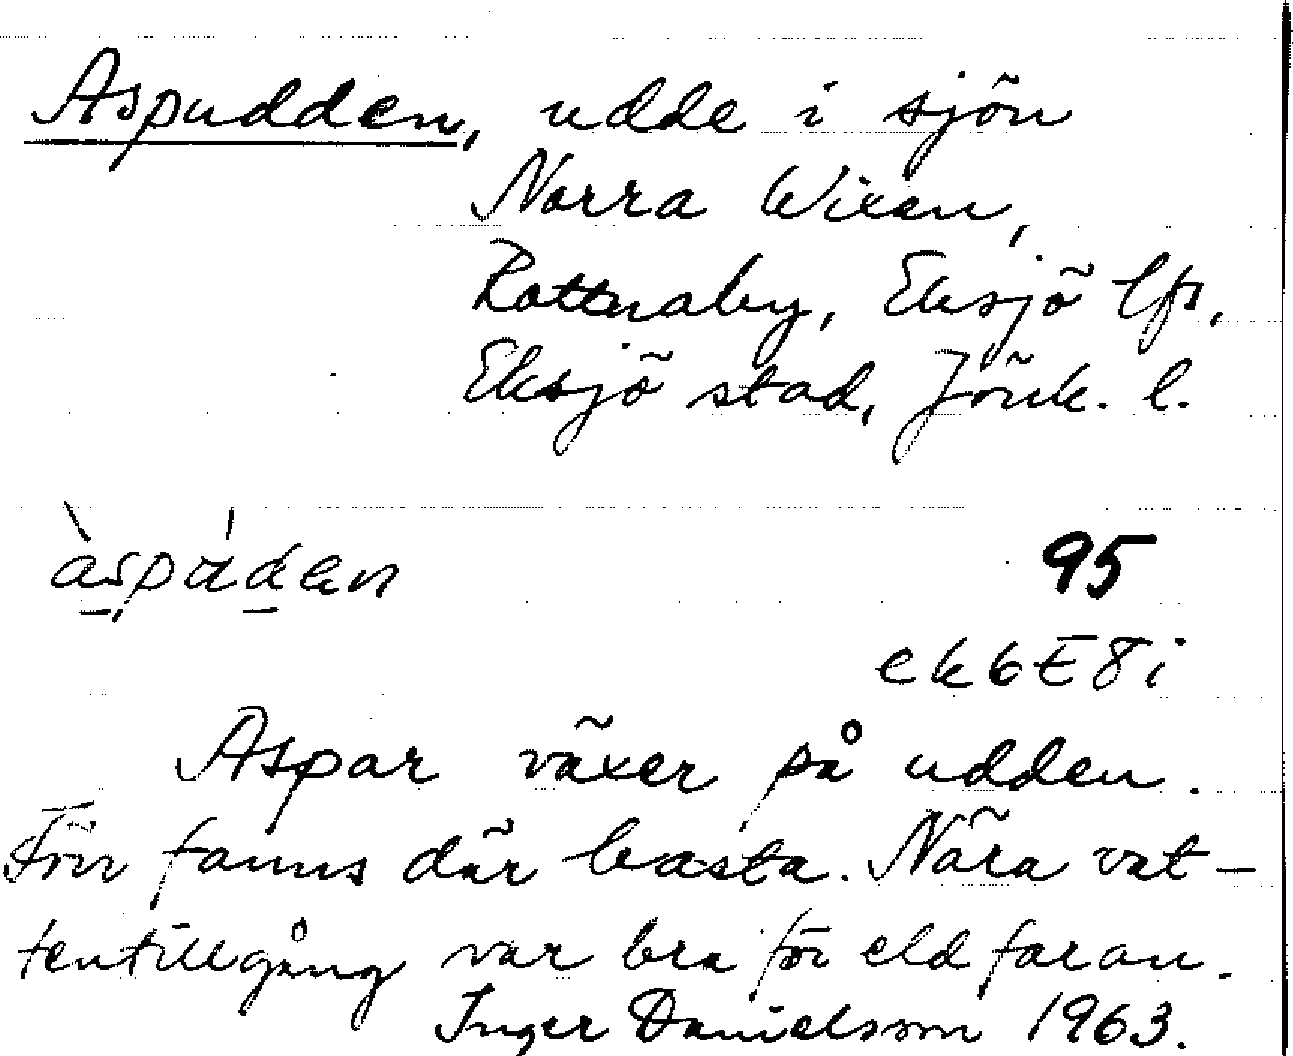 Aspudden, udde i sjön
Norra Wixen,
Rottnaby, Eksjö lfs,
Eksjö stad, Jönk. l.
95
ek6E8i
Aspar växer på udden.
Förr fanns där basta. Nära vat-
tentillgång var bra för eldfaran.
Inger Danielsson 1963.